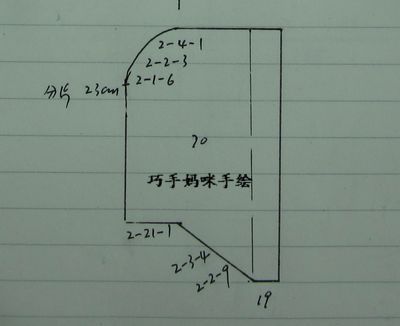 2-4-1
2-2-3
2-1-6
分片 23cm
70
巧手妈咪手绘
2-21-1
2-3-4
2-2-9
19